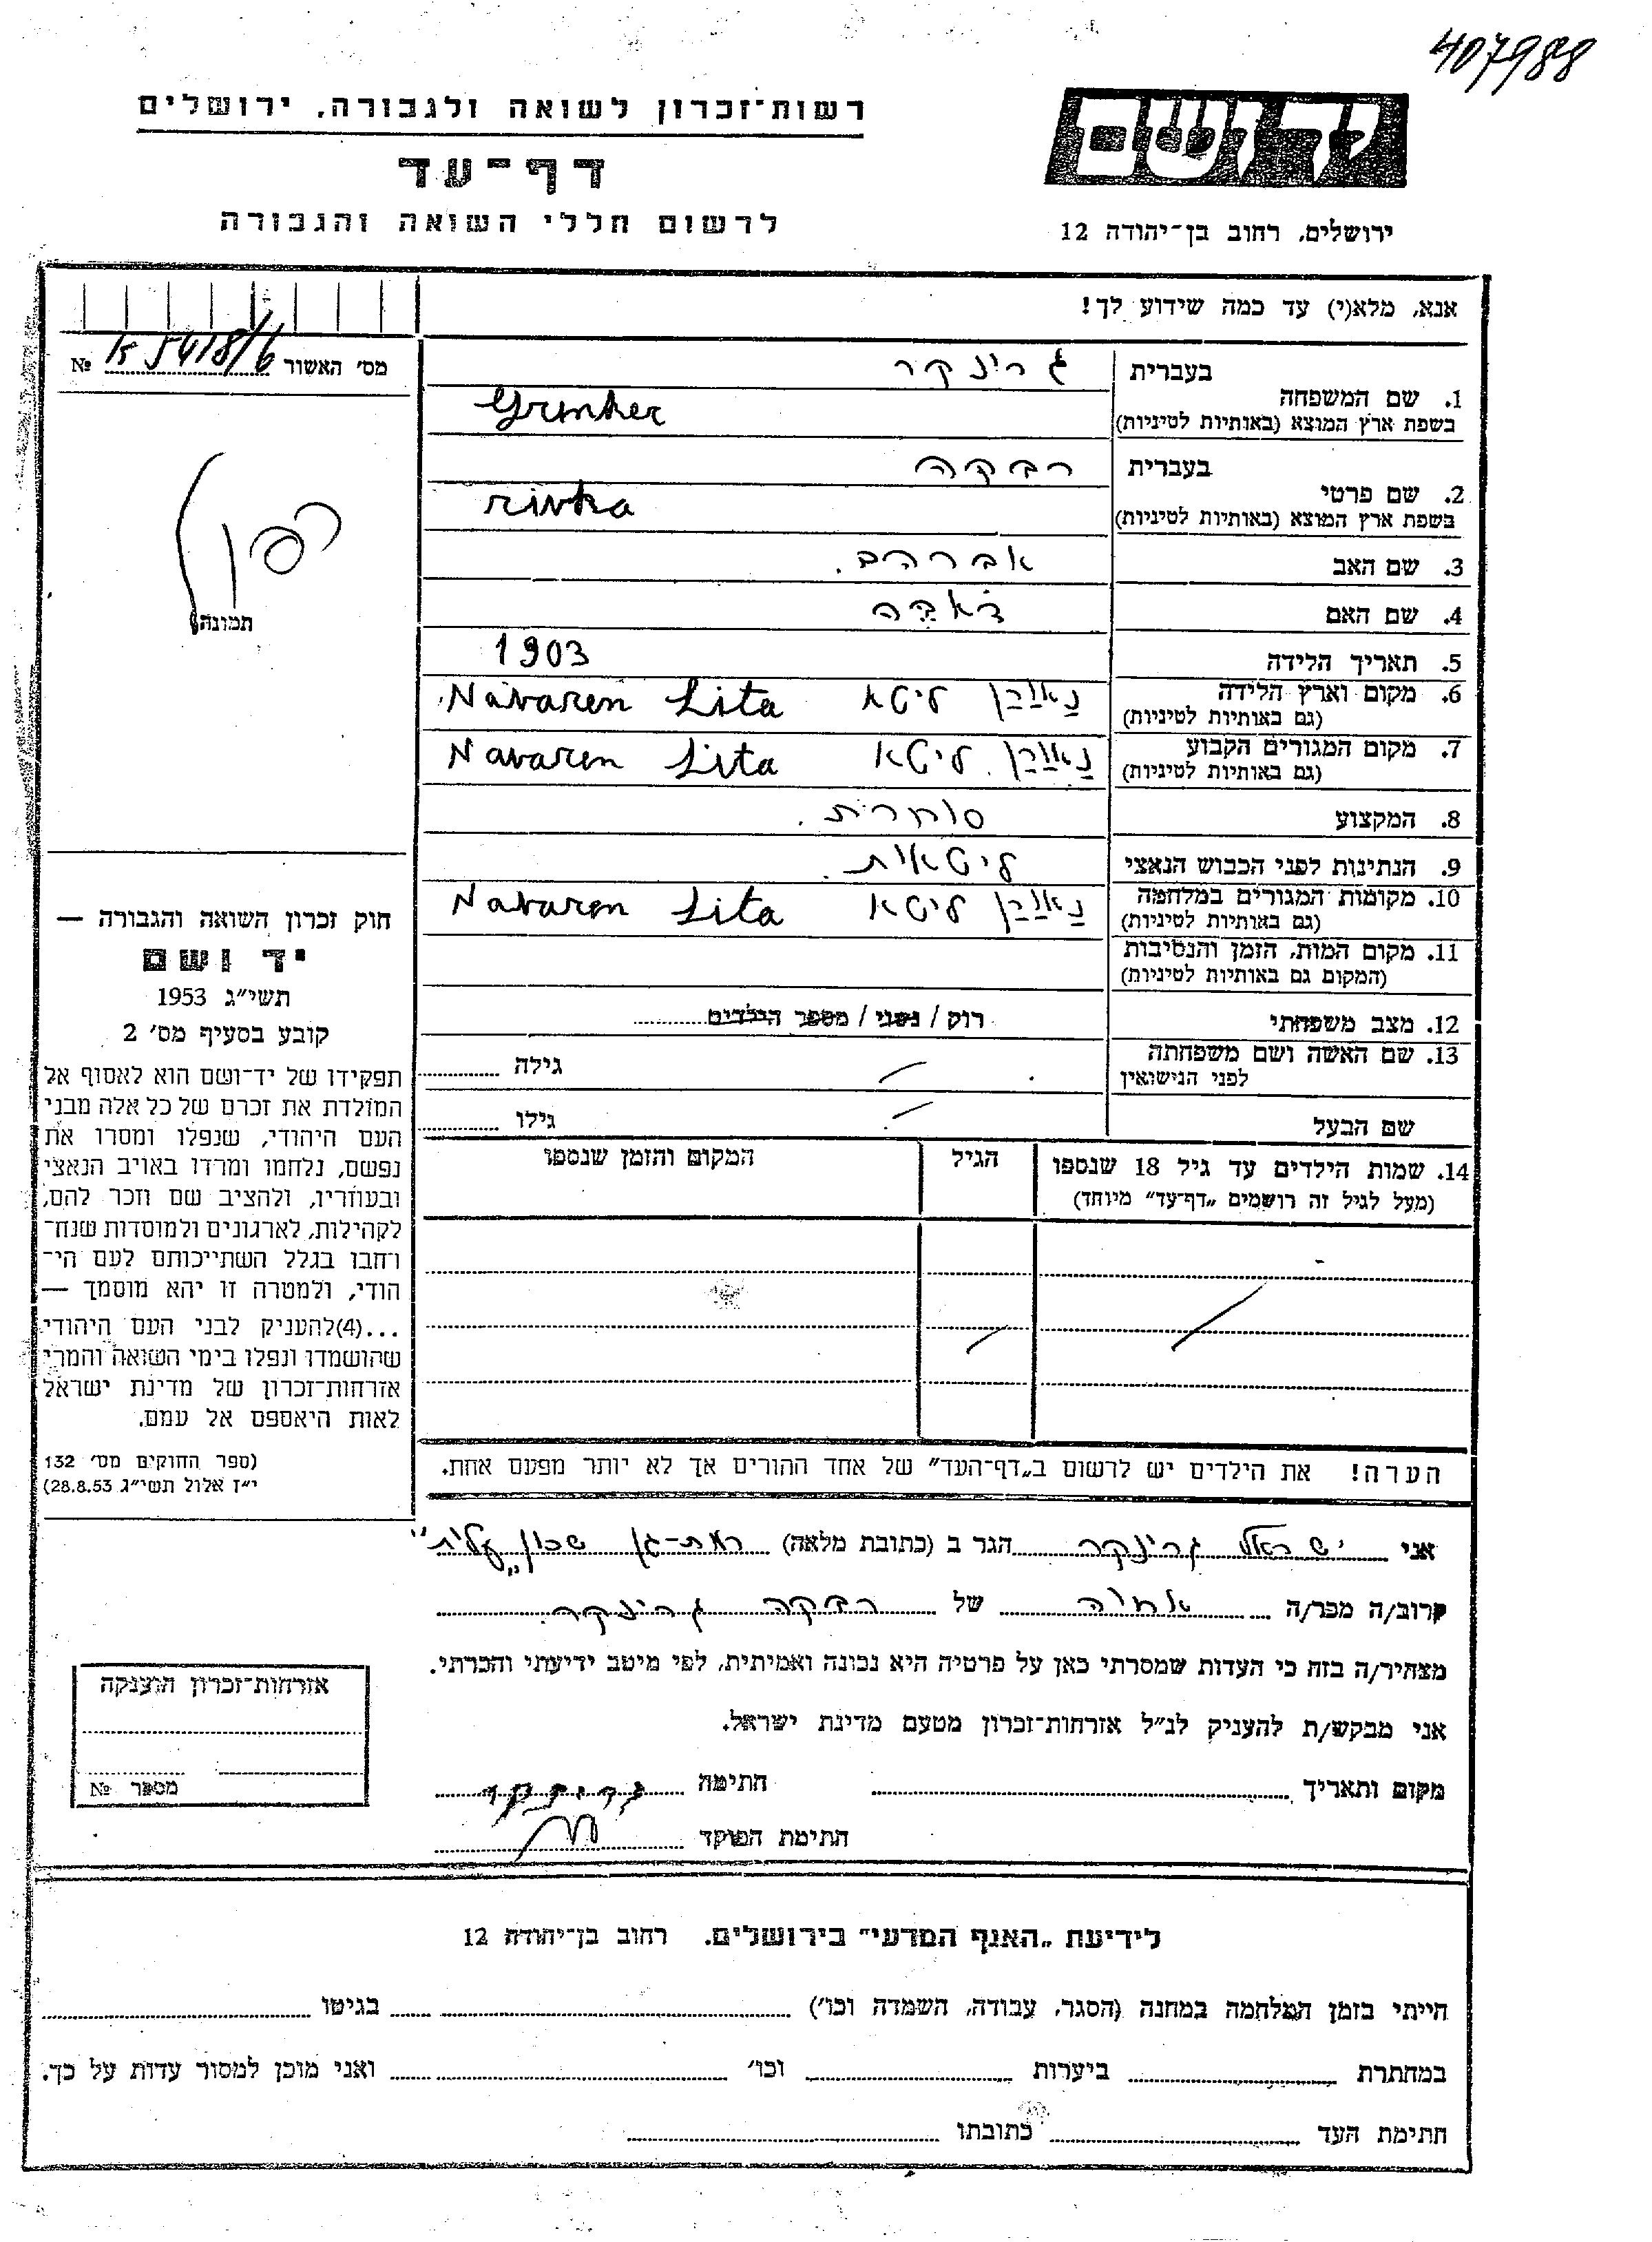 407988
יד ושם
ירושלים, רחוב בן־יהודה 12
רשות־זכרון לשואה ולגבורה, ירושלים
דף־עד
לרשום חללי השואה והגבורה
אנא, מלא(י) עד כמה שידוע לך!
מס׳ האשור №
בעברית גרינקר
1. שם המשפחה
בשפת ארץ המוצא (באותיות לטיניות) Grinker
בעברית רבקה
2. שם פרטי
בשפת ארץ המוצא (באותיות לטיניות) rivka
3. שם האב אברהם.
4. שם האם
5. תאריך הלידה 1903
6. מקום וארץ הלידה נַאוַרַן ליטא Navaren Lita
(גם באותיות לטיניות)
7. מקום המגורים הקבוע נַאוַרַן ליטא Navaren Lita
(גם באותיות לטיניות)
8. המקצוע סוחרת.
9. הנתינות לפני הכבוש הנאצי ליטאית.
10. מקומות המגורים במלחמה נַאוַרַן ליטא Navaren Lita
(גם באותיות לטיניות)
11. מקום המות, הזמן והנסיבות
(המקום גם באותיות לטיניות)
12. מצב משפחתי רוק / נשוי / מספר הילדים
13. שם האשה ושם משפחתה גילה
לפני הנישואין
שם הבעל גילו
14. שמות הילדים עד גיל 18 שנספו הגיל המקום והזמן שנספו
(מעל לגיל זה רושמים „דף־עד" מיוחד)
הערה! את הילדים יש לרשום ב„דף־העד" של אחד ההורים אך לא יותר מפעם אחת.
תמונה
חוק זכרון השואה והגבורה —
יד ושם
תשי"ג 1953
קובע בסעיף מס׳ 2
תפקידו של יד־ושם הוא לאסוף אל
המולדת את זכרם של כל אלה מבני
העם היהודי, שנפלו ומסרו את
נפשם, נלחמו ומרדו באויב הנאצי
ובעוזריו, ולהציב שם וזכר להם,
לקהילות, לארגונים ולמוסדות שנח־
רחבו בגלל השתייכותם לעם הי־
הודי, ולמטרה זו יהא מוסמך —
...(4)להעניק לבני העם היהודי
שהושמדו ונפלו בימי השואה והמרי
אזרחות־זכרון של מדינת ישראל
לאות היאספם אל עמם.
(ספר החוקים מס׳ 132
י"ז אלול תשי"ג 28.8.53)
אני ישראל גרינקר הגר ב (כתובת מלאה) רמת-גן שכון „עלית"
קרוב/ה מכר/ה אחיה של רבקה גרינקר.
מצהיר/ה בזה כי העדות שמסרתי כאן על פרטיה היא נכונה ואמיתית, לפי מיטב ידיעתי והכרתי.
אני מבקש/ת להעניק לנ"ל אזרחות־זכרון מטעם מדינת ישראל.
מקום ותאריך חתימה גרינקר
חתימת הפוקד
אזרחות־זכרון הוענקה
מספר №
לידיעת „האגף המדעי" בירושלים, רחוב בן־יהודה 12
הייתי בזמן המלחמה במחנה (הסגר, עבודה, השמדה וכו׳) בגיטו
במחתרת ביערות וכו׳ ואני מוכן למסור עדות על כך.
חתימת העד כתובתו